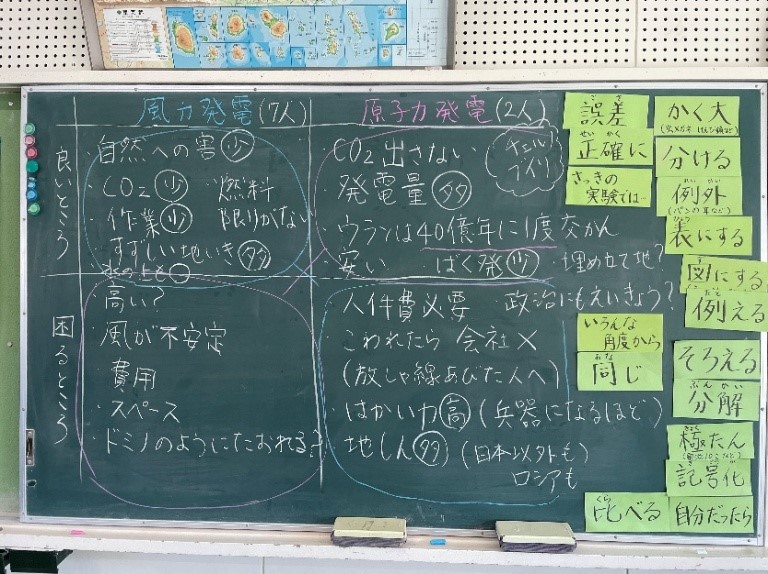 風力発電(7人)
原子力発電(2人)
良いところ
・自然への害 少
・CO2 少 ・燃料
・作業 少 限りがない
・すずしい地いき 多
水の上も○
CO2出さない
チェルノブイリ
発電量 多
・ウランは40億年に1度交かん
・安い ばく発 少 ・埋め立て地?
困るところ
・高い?
・風が不安定
・費用
・スペース
・ドミノのようにたおれる?
・人件費必要 ・政治にもえいきょう?
・こわれたら 会社×
(放しゃ線あびた人へ)
・はかい力 高 (兵器になるほど)
・地しん 多 (日本以外も)
ロシアも
誤差
ごさ
正確に
せいかく
さっきの
実験では…
いろんな
角度から
同じ
おな
比べる
くら
かく大
分ける
例外
れいがい
(パンの耳など)
表にする
図にする
例える
そろえる
分解
ぶんかい
極たん
きょく
記号化
自分だったら